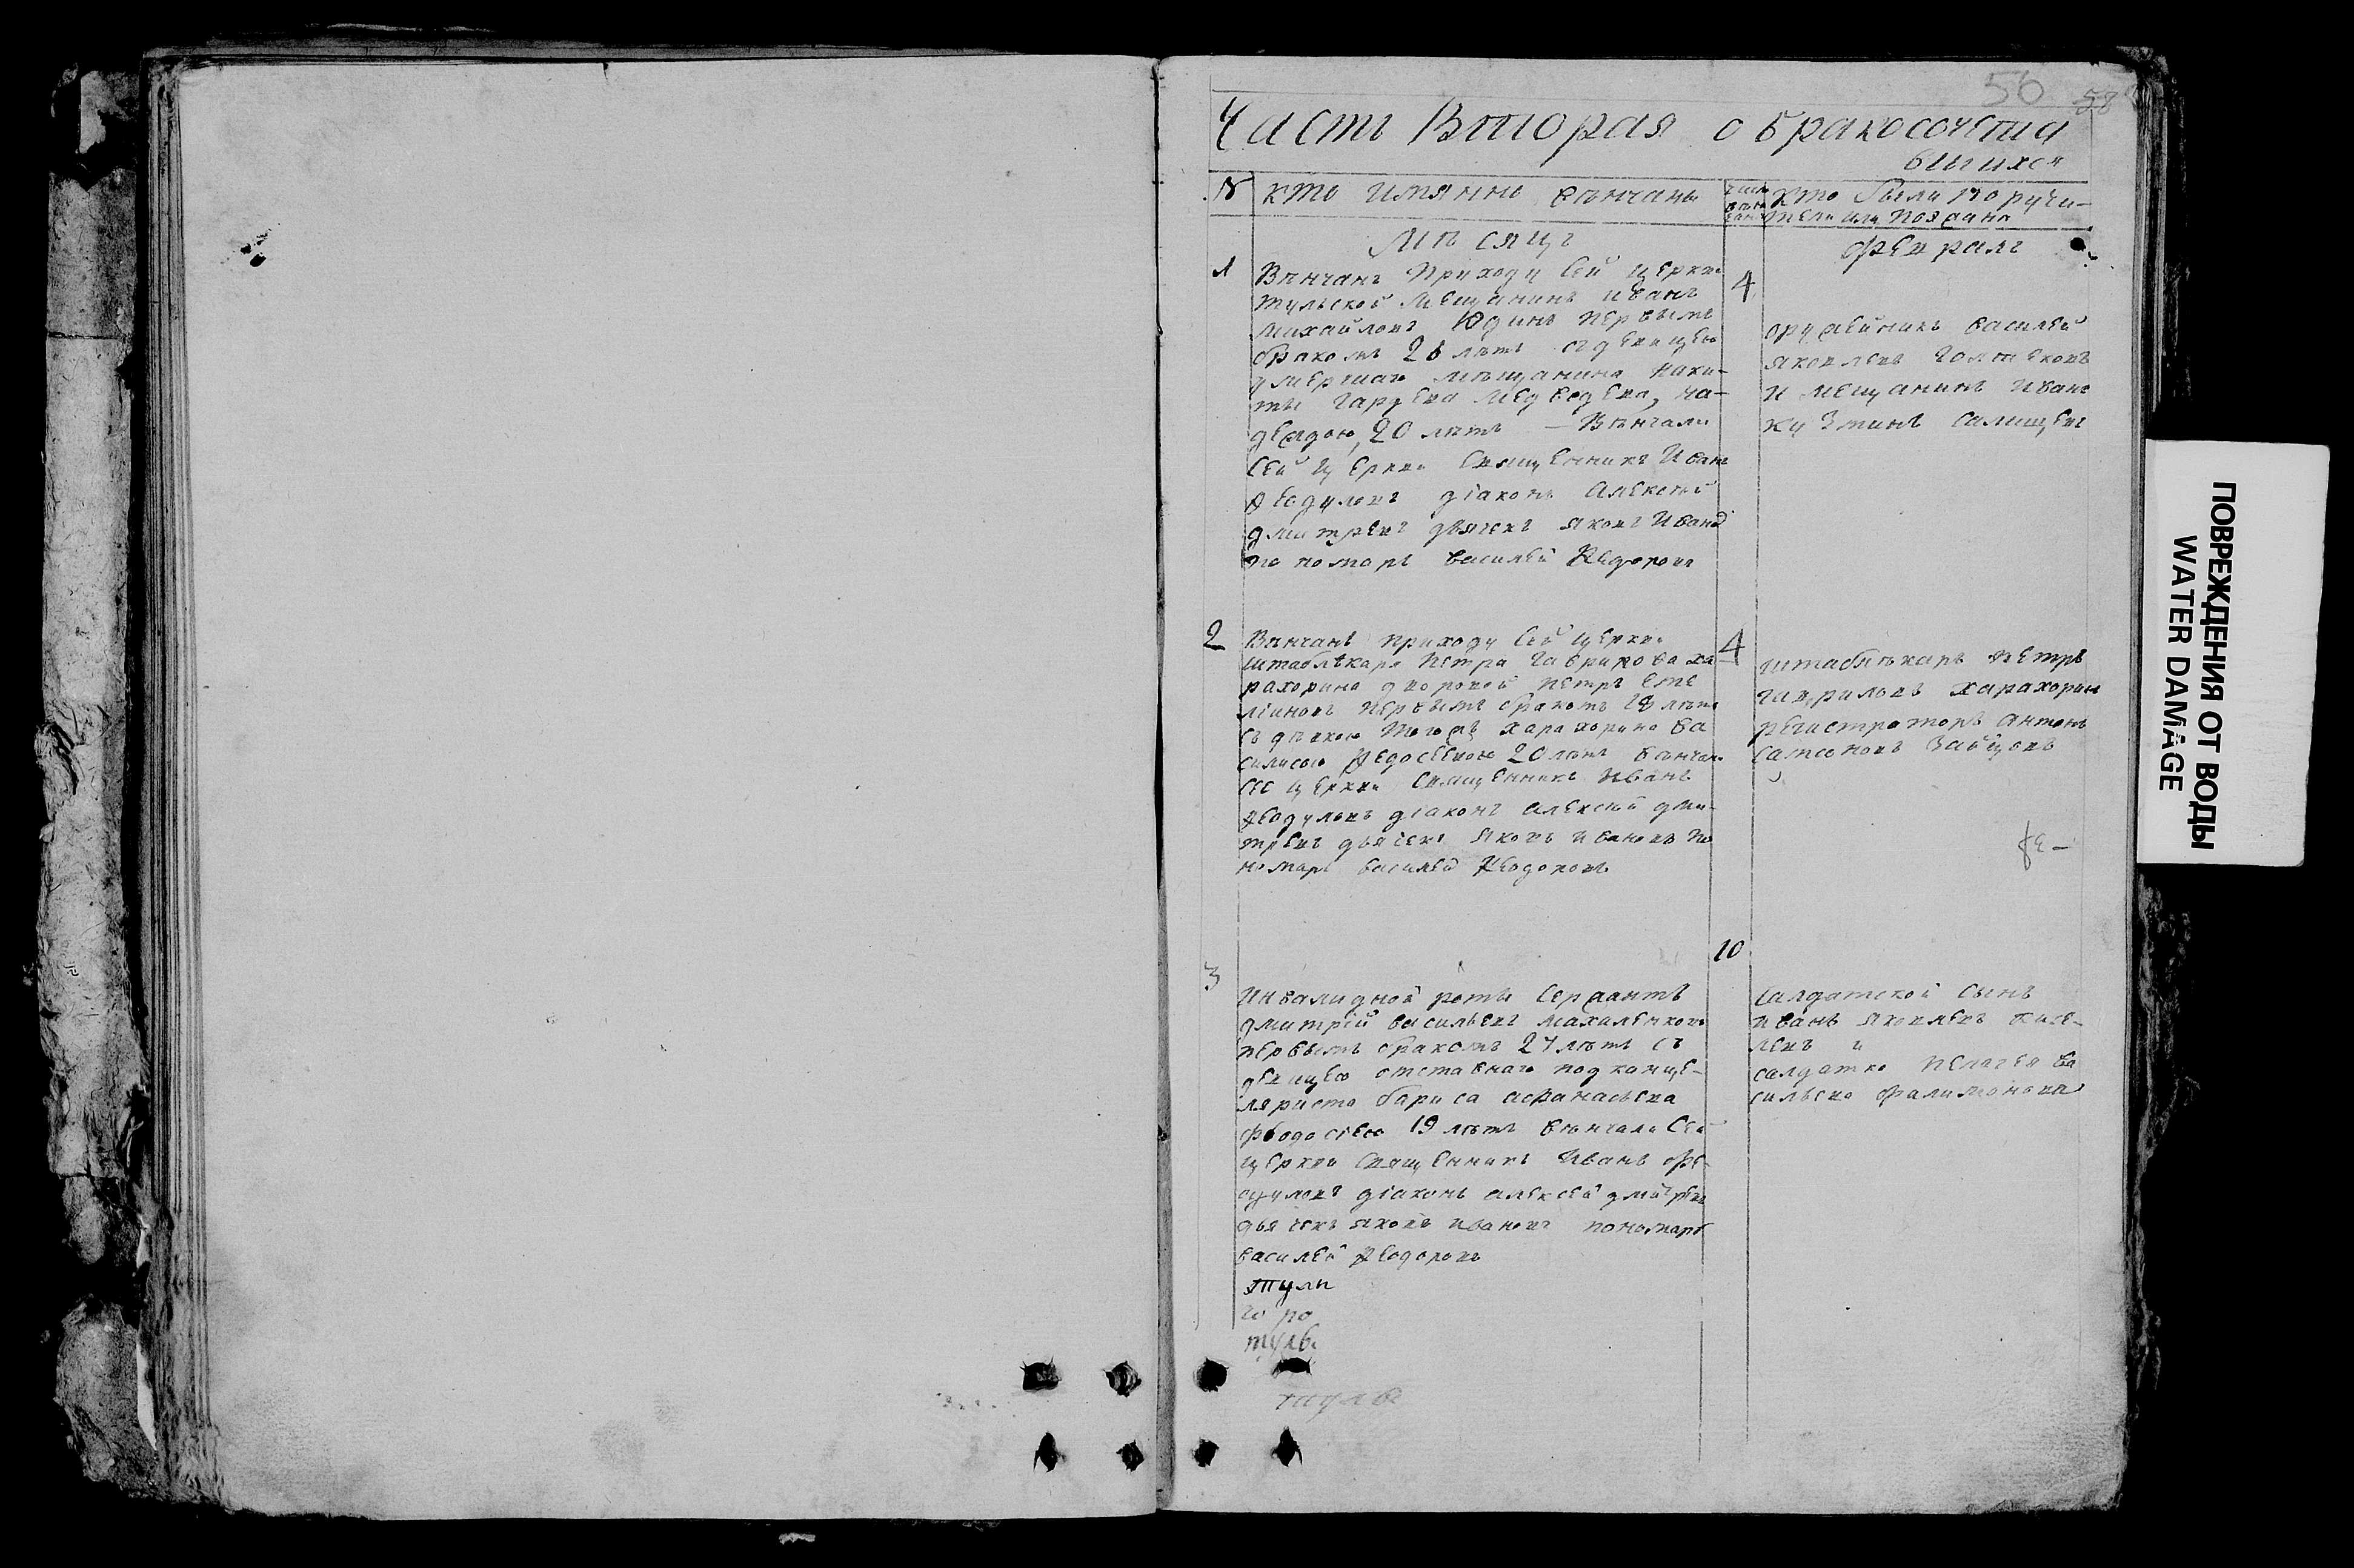 56 58
Часть Вторая о бракосочета
вшихся
№ кто имянно венчаны
кто были поручи-
тели или поезана
Мѣсяцъ Февраль
1 Вѣнчанъ Приходу Сей церкви 4
тульской мещанинъ иванъ
михайловъ Юдинъ первымъ
бракомъ 26 лѣтъ съ девицею
умершаго мѣщанина Ники-
ты гардеева медведева, На-
дѣждою, 20 лѣтъ — Вѣнчали
Сей церкви Священникъ Иванъ
Ѳеодуловъ діаконъ Алексѣй
дмитревъ дьячекъ яковъ Иванов
пономарь василей Ѳедоровъ
оружейникъ василей
яковлевъ голтяковъ
и мещанинъ иванъ
кузминъ салищевъ
2 Вѣнчанъ приходу Сей церкви 4
штаблѣкаря петра гаврилова ха
рахорина дворовой петръ еме
ліановъ первымъ бракомъ 18 лѣтъ
съ дѣвкою тогожъ харахорина ва
силисою Ѳедосеевою 20 лѣтъ вѣнчали
сей церкви священникъ иванъ
Ѳеодуловъ діаконъ алексѣй дми-
тревъ дьячекъ яковъ ивановъ по
номарь василей Ѳеодоровъ
штаблѣкарь петръ
гавриловъ харахорин
регистраторъ антонъ
самсоновъ зайцовъ
3 10
Инвалидной роты Сержантъ
дмитрій васильевъ махаленковъ
первымъ бракомъ 27 лѣтъ съ
девицею отставнаго подканце-
ляриста бариса афанасьева
Феодосіею 19 лѣтъ вѣнчали Сей
церкви священникъ Иванъ Фе-
одуловъ діаконъ алексей дмитрев
дьячекъ яковъ ивановъ пономарь
василей Ѳеодоровъ
туль
го ро
туль
туль
салдатской сынъ
иванъ яковлевъ кисе-
левъ и
салдатка пелагея ва
сильева Фалимонова
ПОВРЕЖДЕНИЯ ОТ ВОДЫ
WATER DAMAGE